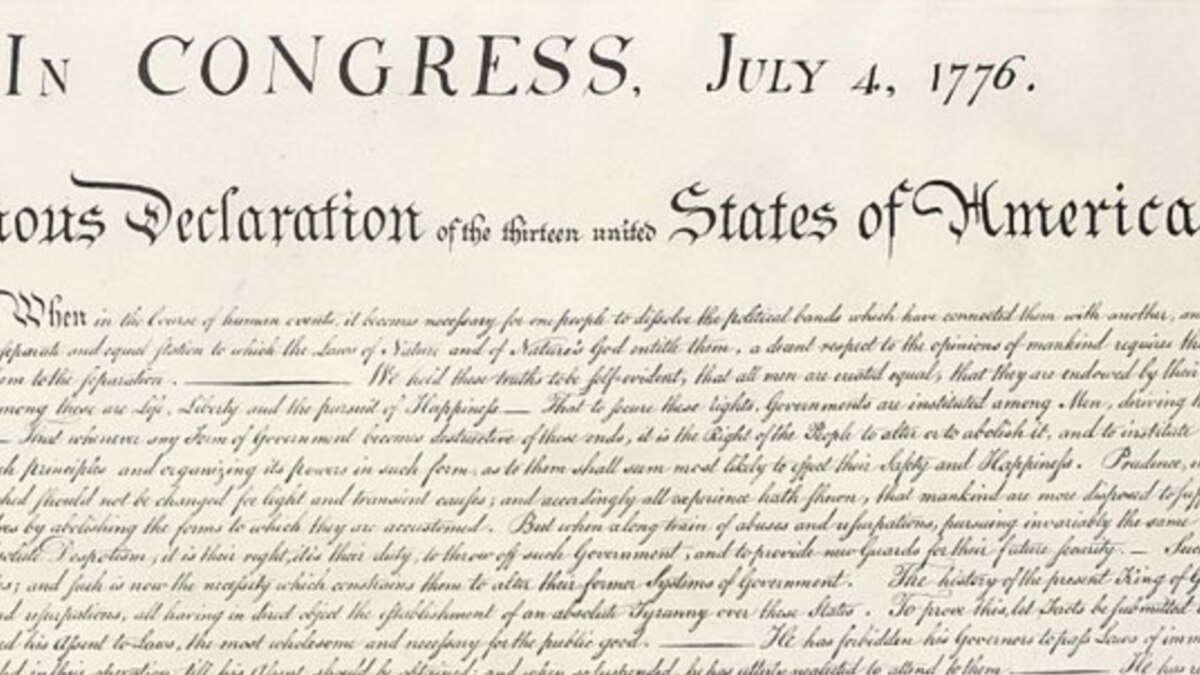 In CONGRESS, July 4, 1776.
mous Declaration of the thirteen united States of America
When in the Course of human events, it becomes necessary for one people to dissolve the political bands which have connected them with another, an
separate and equal station to which the Laws of Nature and of Nature's God entitle them, a decent respect to the opinions of mankind requires tha
em to the separation. — We hold these truths to be self-evident, that all men are created equal, that they are endowed by their
mong these are Life, Liberty and the pursuit of Happiness. — That to secure these rights, Governments are instituted among Men, deriving
— That whenever any Form of Government becomes destructive of these ends, it is the Right of the People to alter or to abolish it, and to institute
ch principles and organizing its powers in such form, as to them shall seem most likely to effect their Safety and Happiness. Prudence,
shed should not be changed for light and transient causes; and accordingly all experience hath shewn, that mankind are more disposed to suff
ves by abolishing the forms to which they are accustomed. But when a long train of abuses and usurpations, pursuing invariably the same
solute Despotism, it is their right, it is their duty, to throw off such Government, and to provide new Guards for their future security. — Suc
es; and such is now the necessity which constrains them to alter their former Systems of Government. The history of the present King of
nd usurpations, all having in direct object the establishment of an absolute Tyranny over these States. To prove this, let Facts be submitted
ed his Assent to Laws, the most wholesome and necessary for the public good. — He has forbidden his Governors to pass Laws of imm
ded in their operation till his Assent should be obtained; and when so suspended, he has utterly neglected to attend to them. — He has